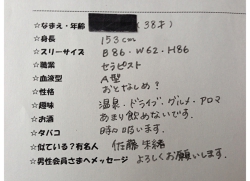 ☆なまえ・年齢 (38才)
☆身長 153cm
☆スリーサイズ B86・W62・H86
☆職業 セラピスト
☆血液型 A型
☆性格 おとなしめ?
☆趣味 温泉・ドライブ・グルメ・アロマ
☆お酒 あまり飲めないです。
☆タバコ 時々吸います。
☆似ている?有名人 佐藤朱緒
☆男性会員さまへメッセージ よろしくお願いします。